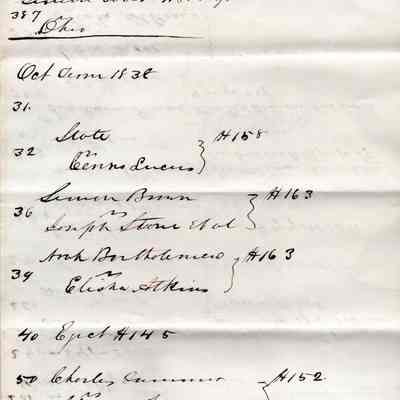 387
Ohio
Oct Term 1838
31.
State
32 vs } H158
Lucius
Simeon Brown } H163
36 vs
Joseph Stone et al
Bartholomew } H163
39 vs
Elisha Atkins
40 Eject H145
50 Charles } H152